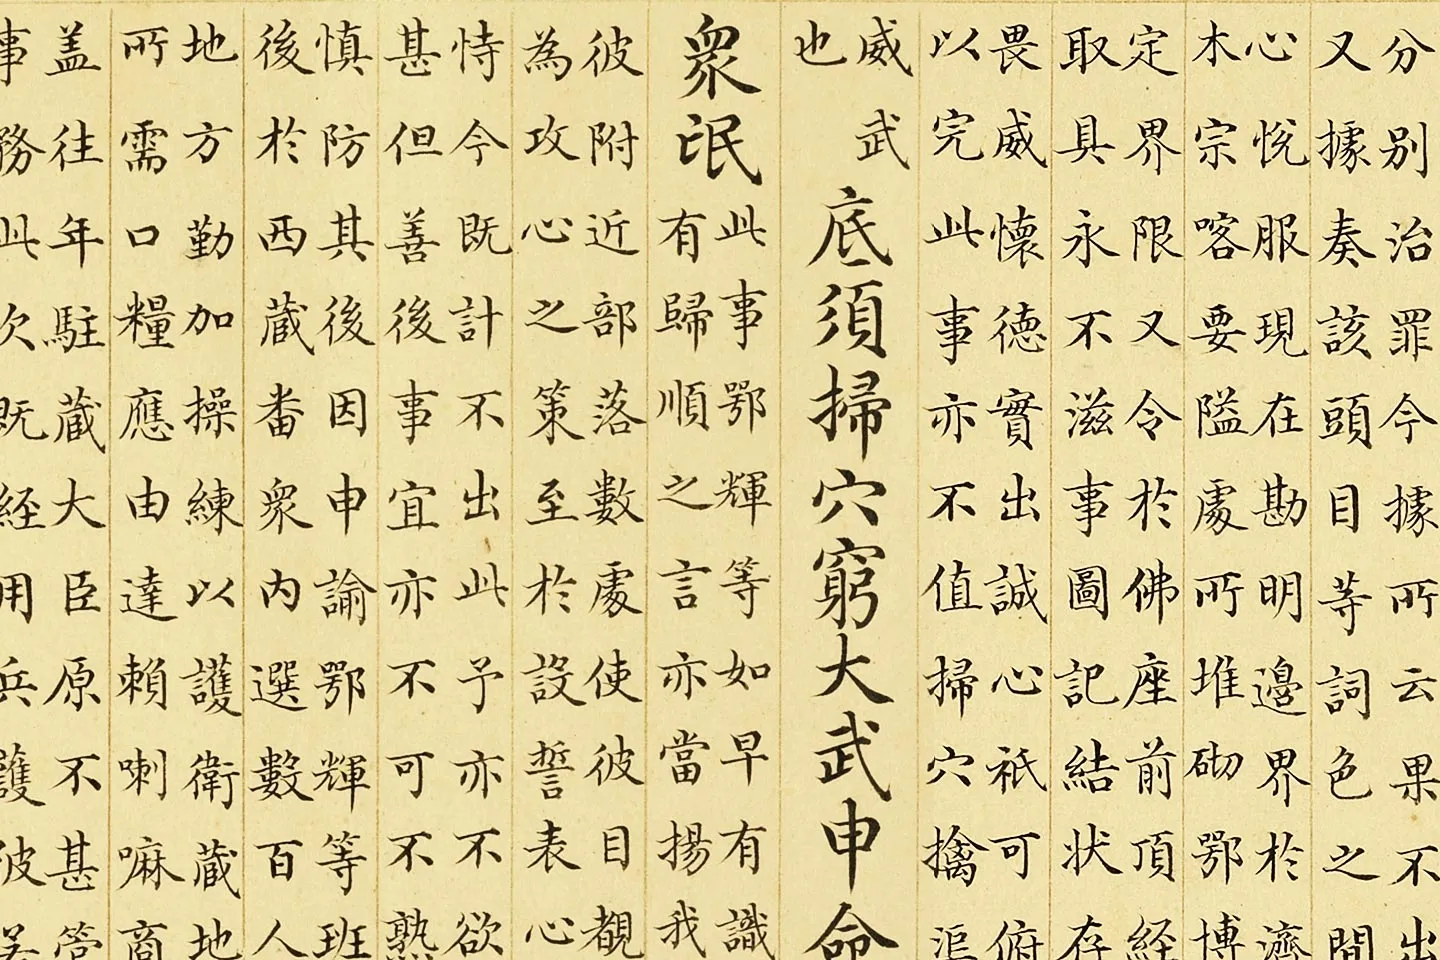 分别治罪今據所云果不出
又據奏該頭目等詞色之間
心悅服現在勘明邊界於濟
木宗喀要隘處所堆砌鄂博
定界限又令於佛座前頂經
取具永不滋事圖記結狀存
畏威懷德實出誠心祇可俯
以完此事亦不值掃穴擒渠
威武
也
底須掃穴窮大武申命
衆氓
此事鄂輝等如早有識
有歸順之言亦當揚我
彼附近部落數處使彼目覩
為攻心之策至於設誓表心
恃今既計不出此予亦不欲
甚但善後事宜亦不可不熟
慎防其後因申諭鄂輝等班
後於西藏番衆內選數百人
地方勤加操練以護衛藏地
所需口糧應由達賴喇嘛商
盖往年駐藏大臣原不甚管
事務此次既経用兵護彼